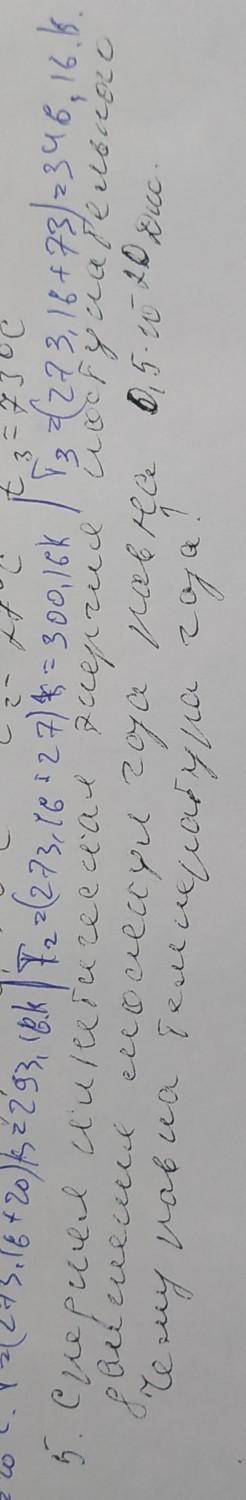 t₃ = 73°C
T=(273,16+20)K=293,16K | T₂=(273,16+27)K=300,16K | T₃=(273,16+73)=346,16.K.
5. Средняя кинетическая энергия поступательного
движения молекул газа равна 0,5·10⁻²⁰ Дж.
Чему равна температура газа?